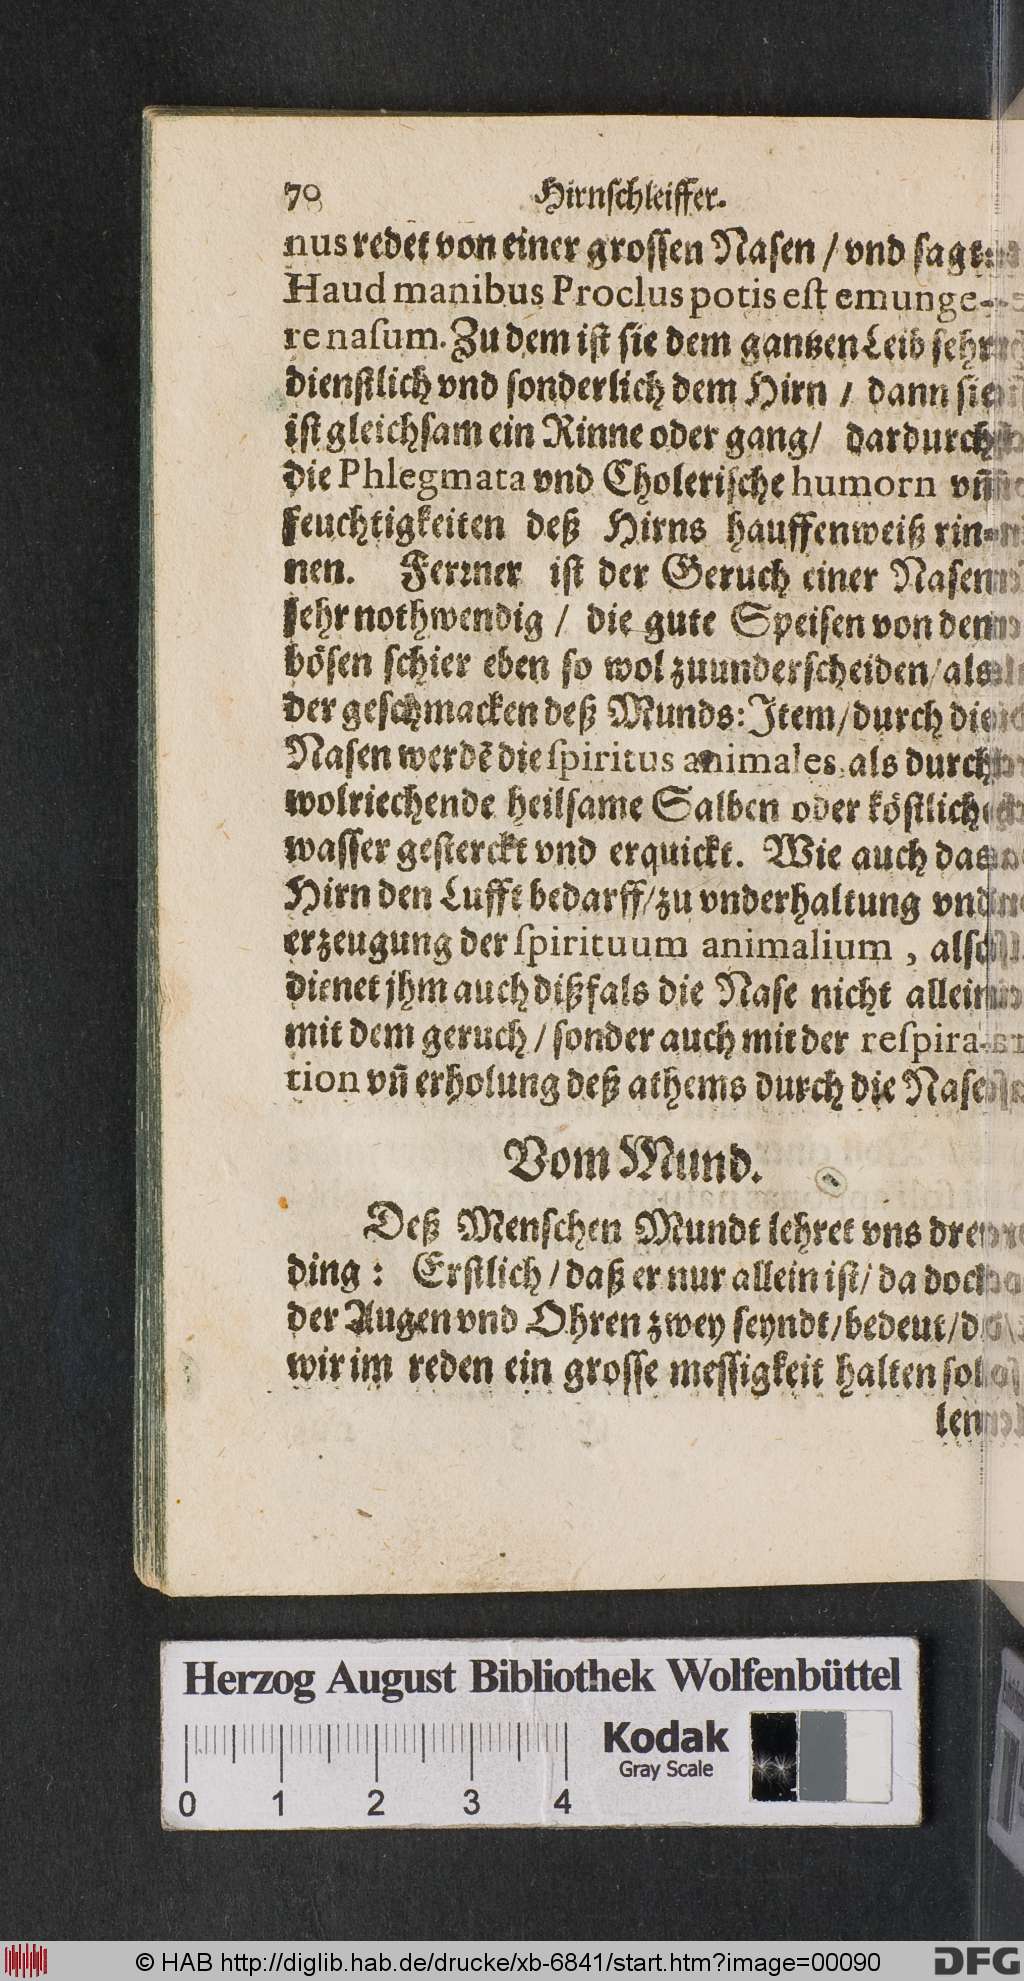 70 Hirnschleiffer.
nus redet von einer grossen Nasen / vnd sagt:
Haud manibus Proclus potis est emunge-
re nasum. Zu dem ist sie dem gantzen Leib sehr
dienstlich vnd sonderlich dem Hirn / dann sie
ist gleichsam ein Rinne oder gang / dardurch
die Phlegmata vnd Cholerische humorn vñ
feuchtigkeiten deß Hirns hauffenweiß rin-
nen. Ferrner ist der Geruch einer Nasen
sehr nothwendig / die gute Speisen von den
bösen schier eben so wol zuunderscheiden / als
der geschmacken deß Munds: Item / durch die
Nasen werdẽ die spiritus animales als durch
wolriechende heilsame Salben oder köstliche
wasser gesterckt vnd erquickt. Wie auch das
Hirn den Lufft bedarff / zu vnderhaltung vnd
erzeugung der spirituum animalium , also
dienet jhm auch dißfals die Nase nicht allein
mit dem geruch / sonder auch mit der respira-
tion vñ erholung deß athems durch die Nase
Vom Mund.
Deß Menschen Mundt lehret vns drey
ding : Erstlich / daß er nur allein ist / da doch
der Augen vnd Ohren zwey seyndt / bedeut /
wir im reden ein grosse messigkeit halten sol
len
Herzog August Bibliothek Wolfenbüttel
Kodak
Gray Scale
0 1 2 3 4
© HAB http://diglib.hab.de/drucke/xb-6841/start.htm?image=00090
DFG